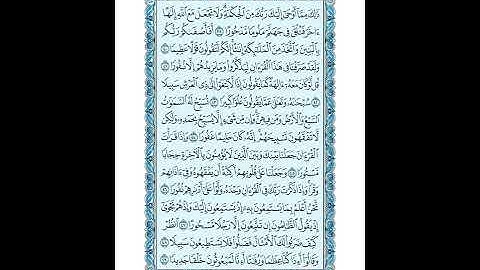 ذَٰلِكَ مِمَّآ أَوْحَىٰٓ إِلَيْكَ رَبُّكَ مِنَ ٱلْحِكْمَةِ ۗ وَلَا تَجْعَلْ مَعَ ٱللَّهِ إِلَٰهًا
ءَاخَرَ فَتُلْقَىٰ فِى جَهَنَّمَ مَلُومًا مَّدْحُورًا ٣٩ أَفَأَصْفَىٰكُمْ رَبُّكُم
بِٱلْبَنِينَ وَٱتَّخَذَ مِنَ ٱلْمَلَٰٓئِكَةِ إِنَٰثًا ۚ إِنَّكُمْ لَتَقُولُونَ قَوْلًا عَظِيمًا ٤٠
وَلَقَدْ صَرَّفْنَا فِى هَٰذَا ٱلْقُرْءَانِ لِيَذَّكَّرُوا۟ وَمَا يَزِيدُهُمْ إِلَّا نُفُورًا ٤١
قُل لَّوْ كَانَ مَعَهُۥٓ ءَالِهَةٌ كَمَا يَقُولُونَ إِذًا لَّٱبْتَغَوْا۟ إِلَىٰ ذِى ٱلْعَرْشِ سَبِيلًا
٤٢ سُبْحَٰنَهُۥ وَتَعَٰلَىٰ عَمَّا يَقُولُونَ عُلُوًّا كَبِيرًا ٤٣ تُسَبِّحُ لَهُ ٱلسَّمَٰوَٰتُ
ٱلسَّبْعُ وَٱلْأَرْضُ وَمَن فِيهِنَّ ۚ وَإِن مِّن شَىْءٍ إِلَّا يُسَبِّحُ بِحَمْدِهِۦ وَلَٰكِن
لَّا تَفْقَهُونَ تَسْبِيحَهُمْ ۗ إِنَّهُۥ كَانَ حَلِيمًا غَفُورًا ٤٤ وَإِذَا قَرَأْتَ
ٱلْقُرْءَانَ جَعَلْنَا بَيْنَكَ وَبَيْنَ ٱلَّذِينَ لَا يُؤْمِنُونَ بِٱلْـَٔاخِرَةِ حِجَابًا
مَّسْتُورًا ٤٥ وَجَعَلْنَا عَلَىٰ قُلُوبِهِمْ أَكِنَّةً أَن يَفْقَهُوهُ وَفِىٓ ءَاذَانِهِمْ
وَقْرًا ۚ وَإِذَا ذَكَرْتَ رَبَّكَ فِى ٱلْقُرْءَانِ وَحْدَهُۥ وَلَّوْا۟ عَلَىٰٓ أَدْبَٰرِهِمْ نُفُورًا ٤٦
نَّحْنُ أَعْلَمُ بِمَا يَسْتَمِعُونَ بِهِۦٓ إِذْ يَسْتَمِعُونَ إِلَيْكَ وَإِذْ هُمْ نَجْوَىٰٓ
إِذْ يَقُولُ ٱلظَّٰلِمُونَ إِن تَتَّبِعُونَ إِلَّا رَجُلًا مَّسْحُورًا ٤٧ ٱنظُرْ
كَيْفَ ضَرَبُوا۟ لَكَ ٱلْأَمْثَالَ فَضَلُّوا۟ فَلَا يَسْتَطِيعُونَ سَبِيلًا ٤٨
وَقَالُوٓا۟ أَءِذَا كُنَّا عِظَٰمًا وَرُفَٰتًا أَءِنَّا لَمَبْعُوثُونَ خَلْقًا جَدِيدًا ٤٩